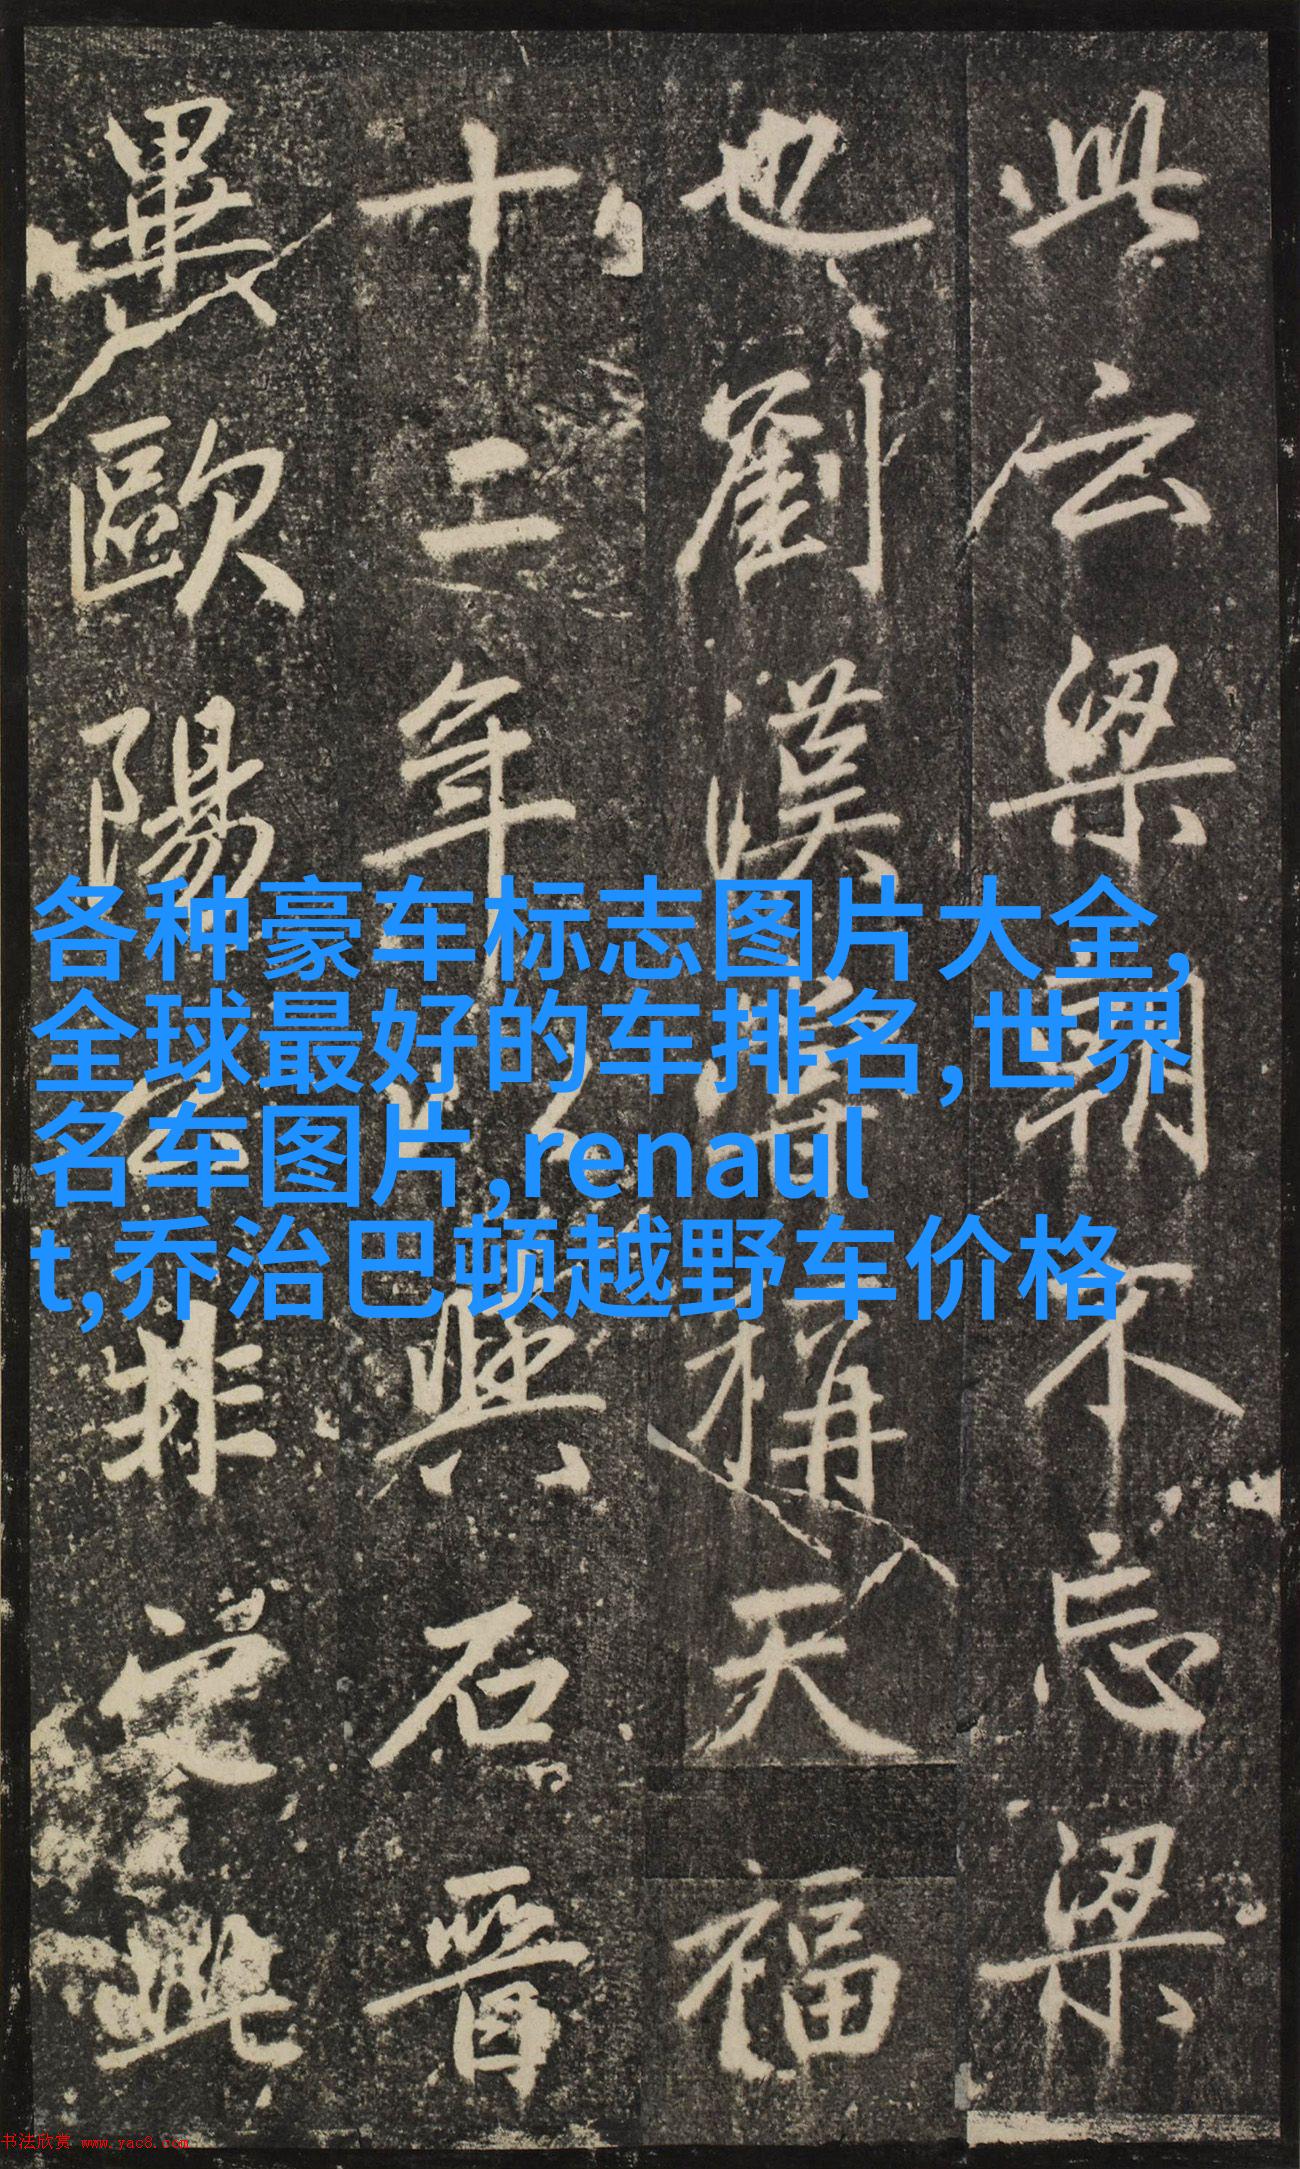 此云梁朝不忘梁
也劉漢稱天福
十二年與石晉
畢歐陽公非此
各种豪车标志图片大全,
全球最好的车排名,世界
名车图片,renaul
t,乔治巴顿越野车价格
书法欣赏 www.yac8.com